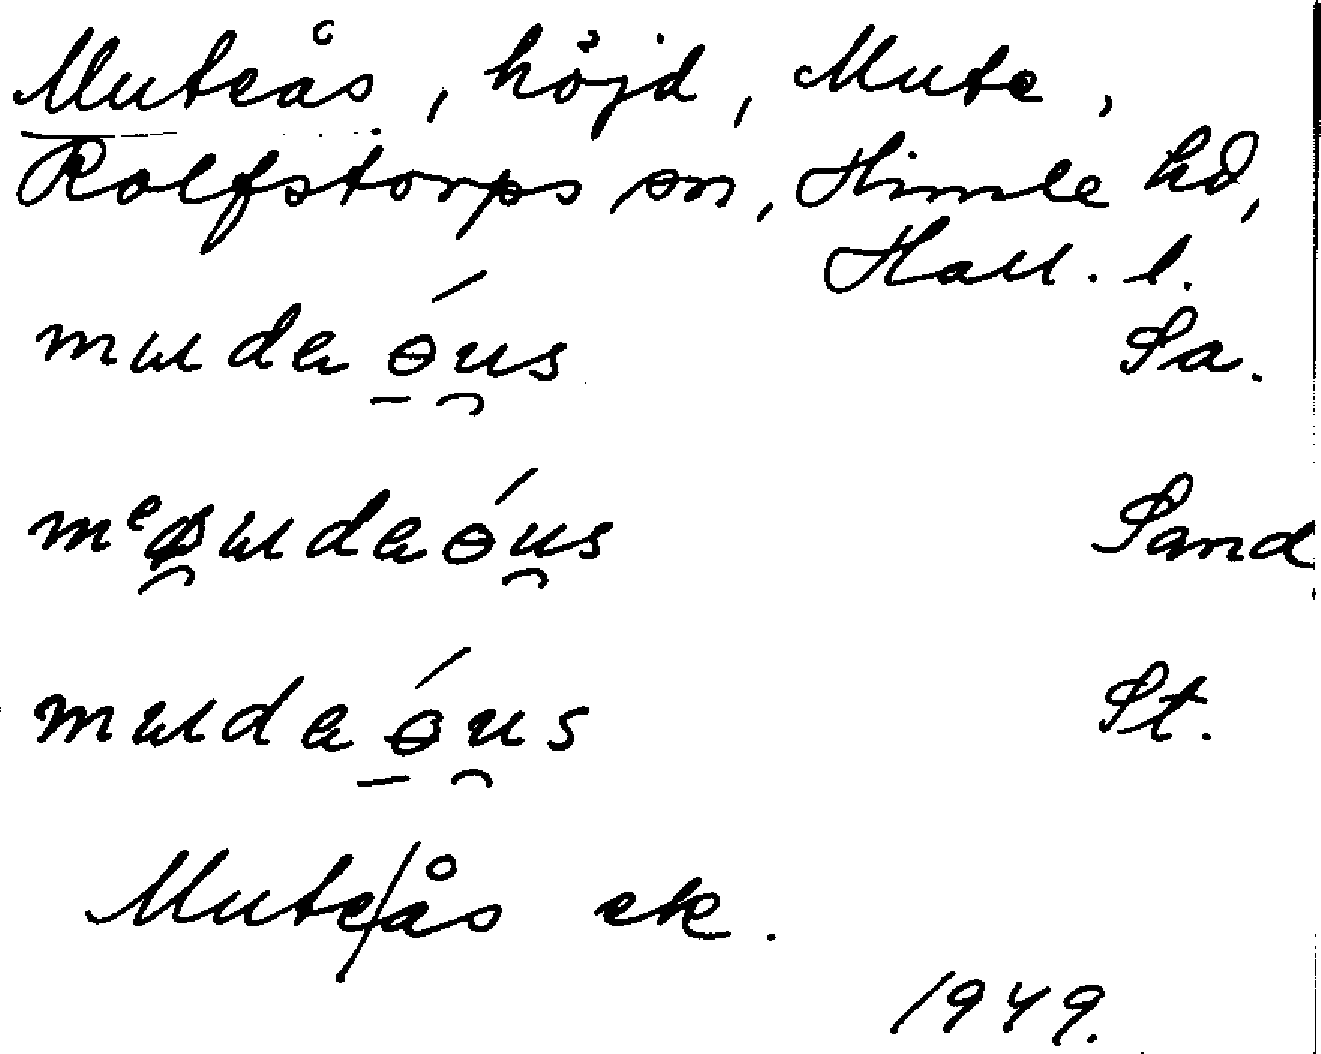 Muteås, höjd, Mute,
Rolfstorps sn, Himle hd,
Hall. l.
mɯdaɵ́us Sa.
mᵉɯdaɵ́us Sand
mɯdaɵ́us St.
Mute/ås ek.
1949.